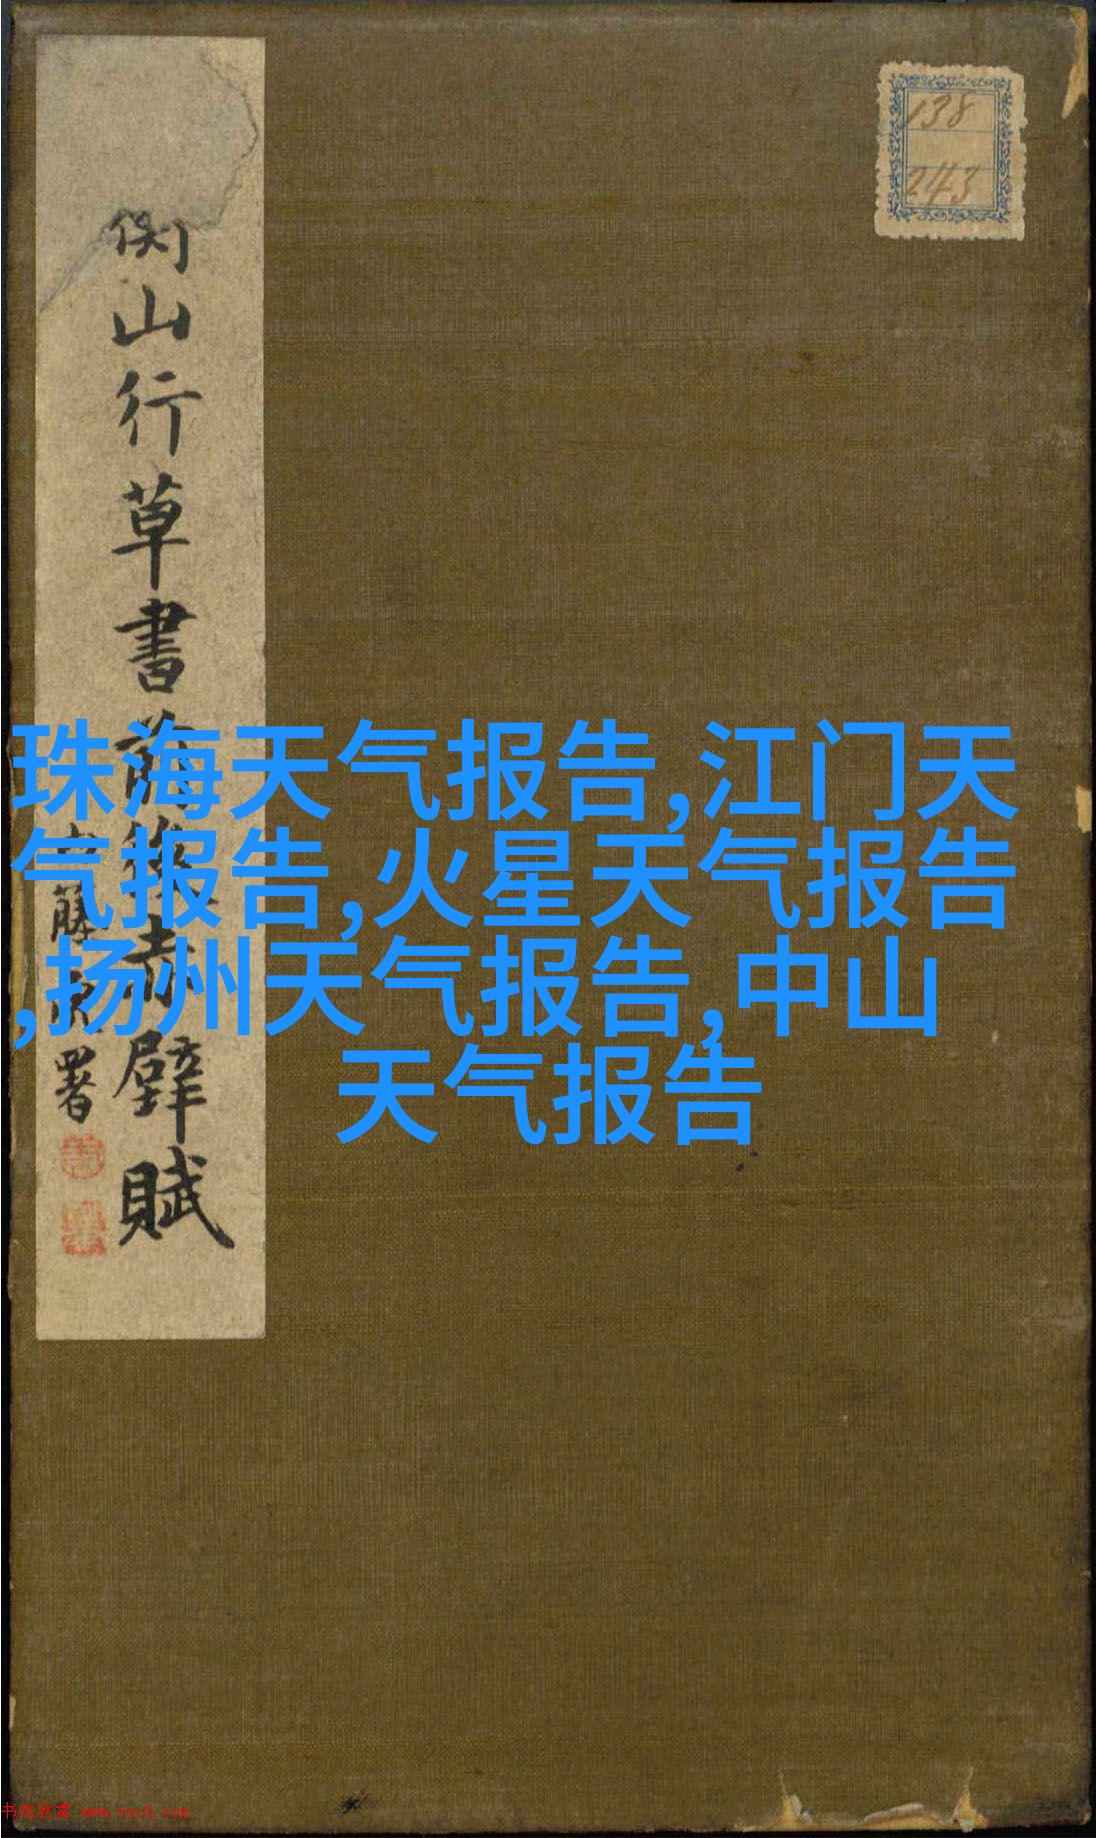 138
243
山行草書前後赤壁賦
藤
署
珠海天气报告,江门天
气报告,火星天气报告
,扬州天气报告,中山
天气报告
书法欣赏 www.yac8.com